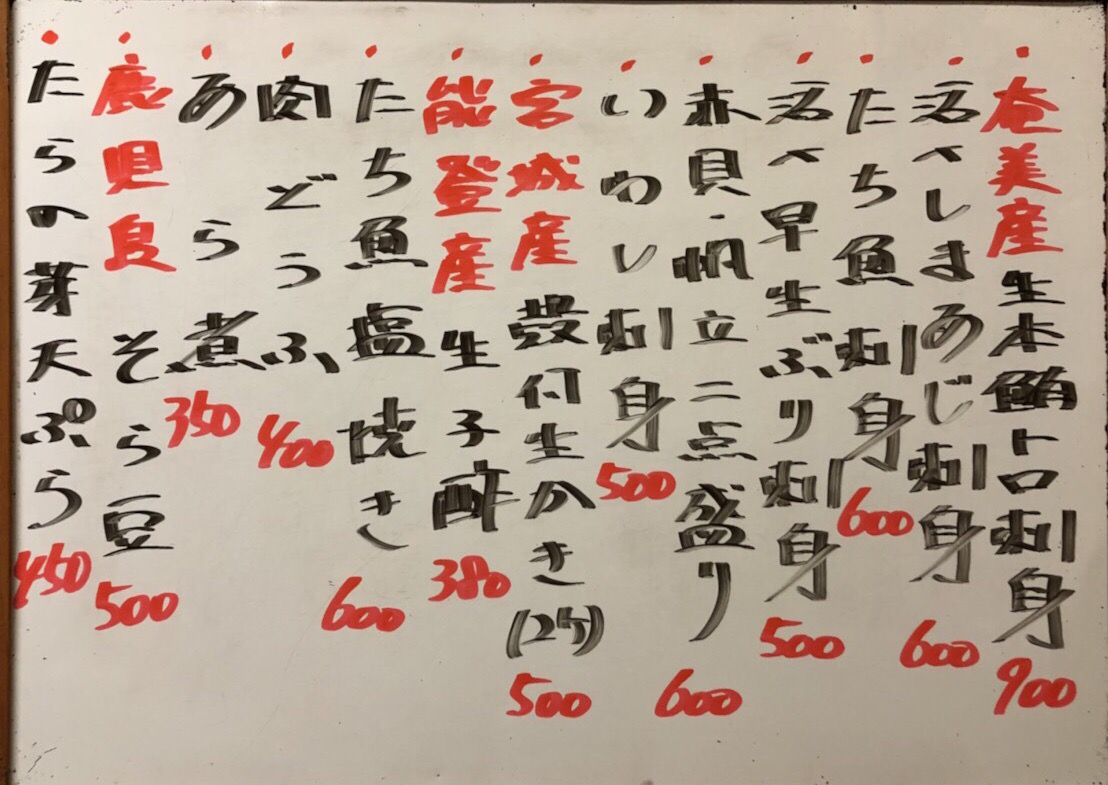 奄美産生本鮪トロ刺身 900
活〆しまあじ刺身 600
たち魚刺身 600
活〆早生ぶり刺身 500
赤貝・帆立二点盛り 600
いわし刺身 500
宮城産殻付生かき(2ケ) 500
能登産生子酢 380
たち魚塩焼き 600
肉どうふ 400
あら煮 350
鹿児島そら豆 500
たらの芽天ぷら 450